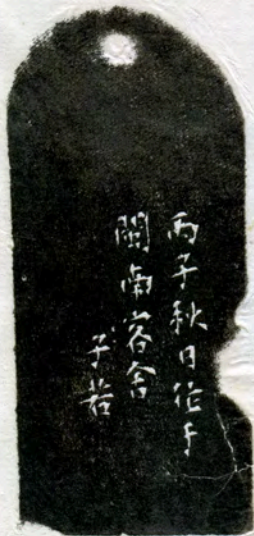 丙子秋日作于
閩南客舍
子若